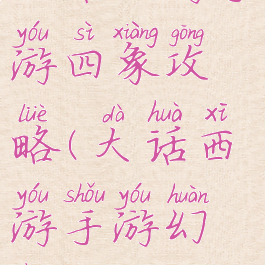 yóu sì xiàng gōng
游四象攻
lüè dà huà xī
略(大话西
yóu shǒu yóu huàn
游手游幻